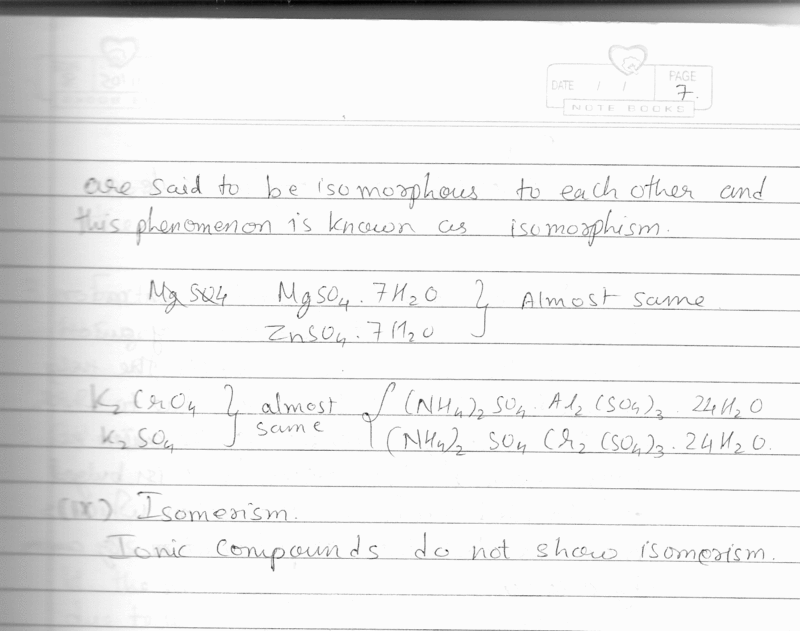 DATE / / PAGE
7.
NOTE BOOKS
are said to be isomorphous to each other and
this phenomenon is known as isomorphism.
MgSO4 MgSO4.7H2O } Almost same
ZnSO4.7H2O
K2CrO4 } almost { (NH4)2 SO4. Al2 (SO4)3. 24H2O
K2SO4 same (NH4)2 SO4 Cr2 (SO4)3. 24H2O.
(ix) Isomerism.
Ionic compounds do not show isomerism.